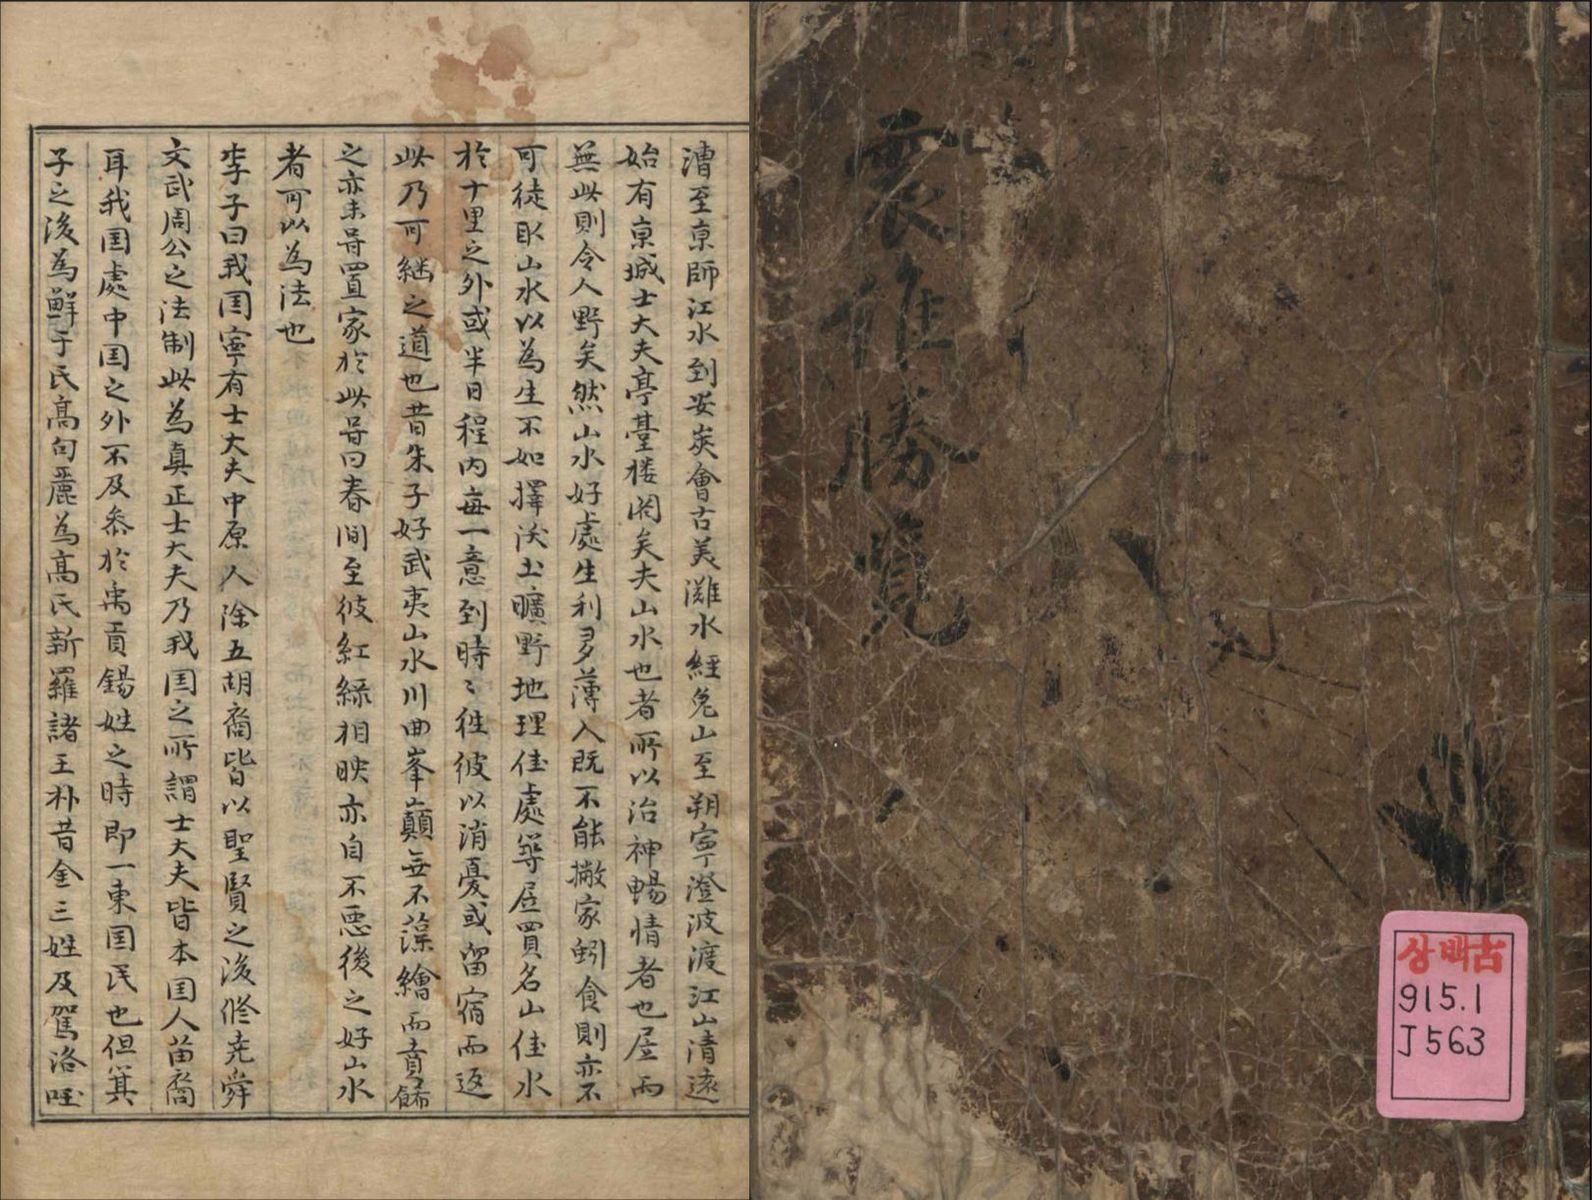 漕至京師江水到安炭會古美灘水經兔山至朔寧澄波渡江山清遠
始有京城士大夫亭臺楼阁矣夫山水也者所以治神暢情者也居而
無此則令人野矣然山水好處生利多薄人既不能撇家蚓食則亦不
可徒取山水以為生不如擇沃土曠野地理佳處築居買名山佳水
於十里之外或半日程內每一意到時〻往彼以消憂或留宿而返
此乃可継之道也昔朱子好武夷山水川曲峯巔無不藻繪而賁餙
之亦未甞置家於此甞曰春間至彼紅緑相映亦自不悪後之好山水
者可以為法也
李子曰我国寧有士大夫中原人除五胡裔皆以聖賢之後修尭舜
文武周公之法制此為真正士大夫乃我国之所謂士大夫皆本国人苗裔
耳我国處中国之外不及叅於禹貢錫姓之時即一東国民也但箕
子之後為鮮于氏高句麗為高氏新羅諸王朴昔金三姓及駕洛
震維勝覧
상백古
915.1
J563